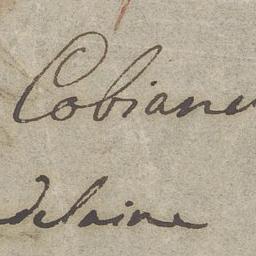 Cobiane
delaine